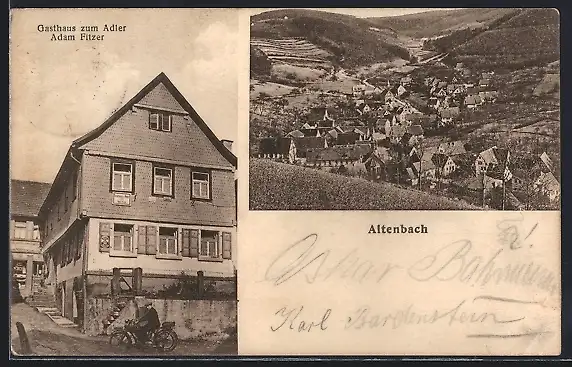 Gasthaus zum Adler
Adam Fitzer
Altenbach
Oskar
Karl Bardenstein